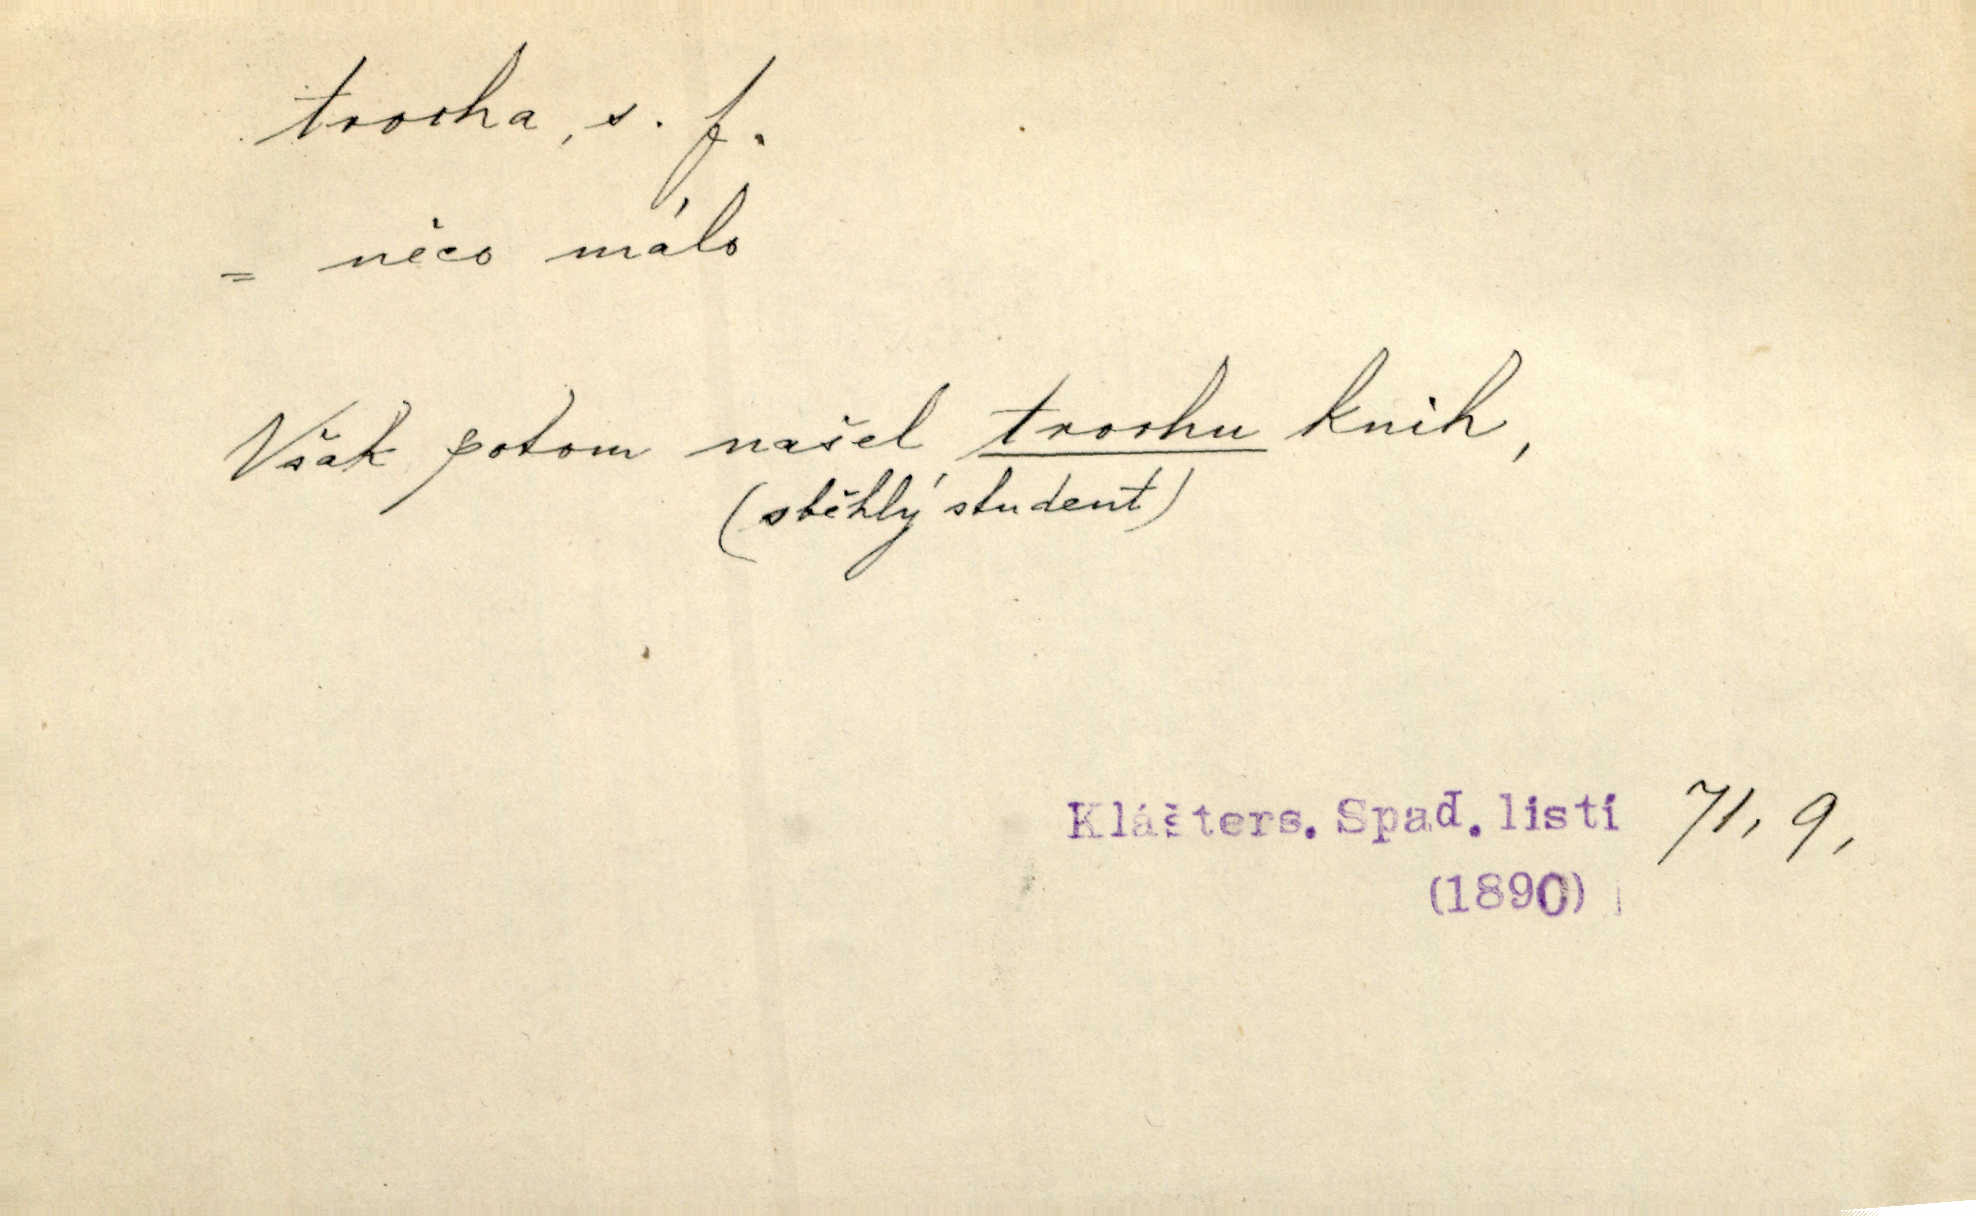 trocha, s. f.
= něco málo
Však potom našel trochu knih,
(sběhlý student)
Klášters. Spad. listí 71, 9,
(1890)